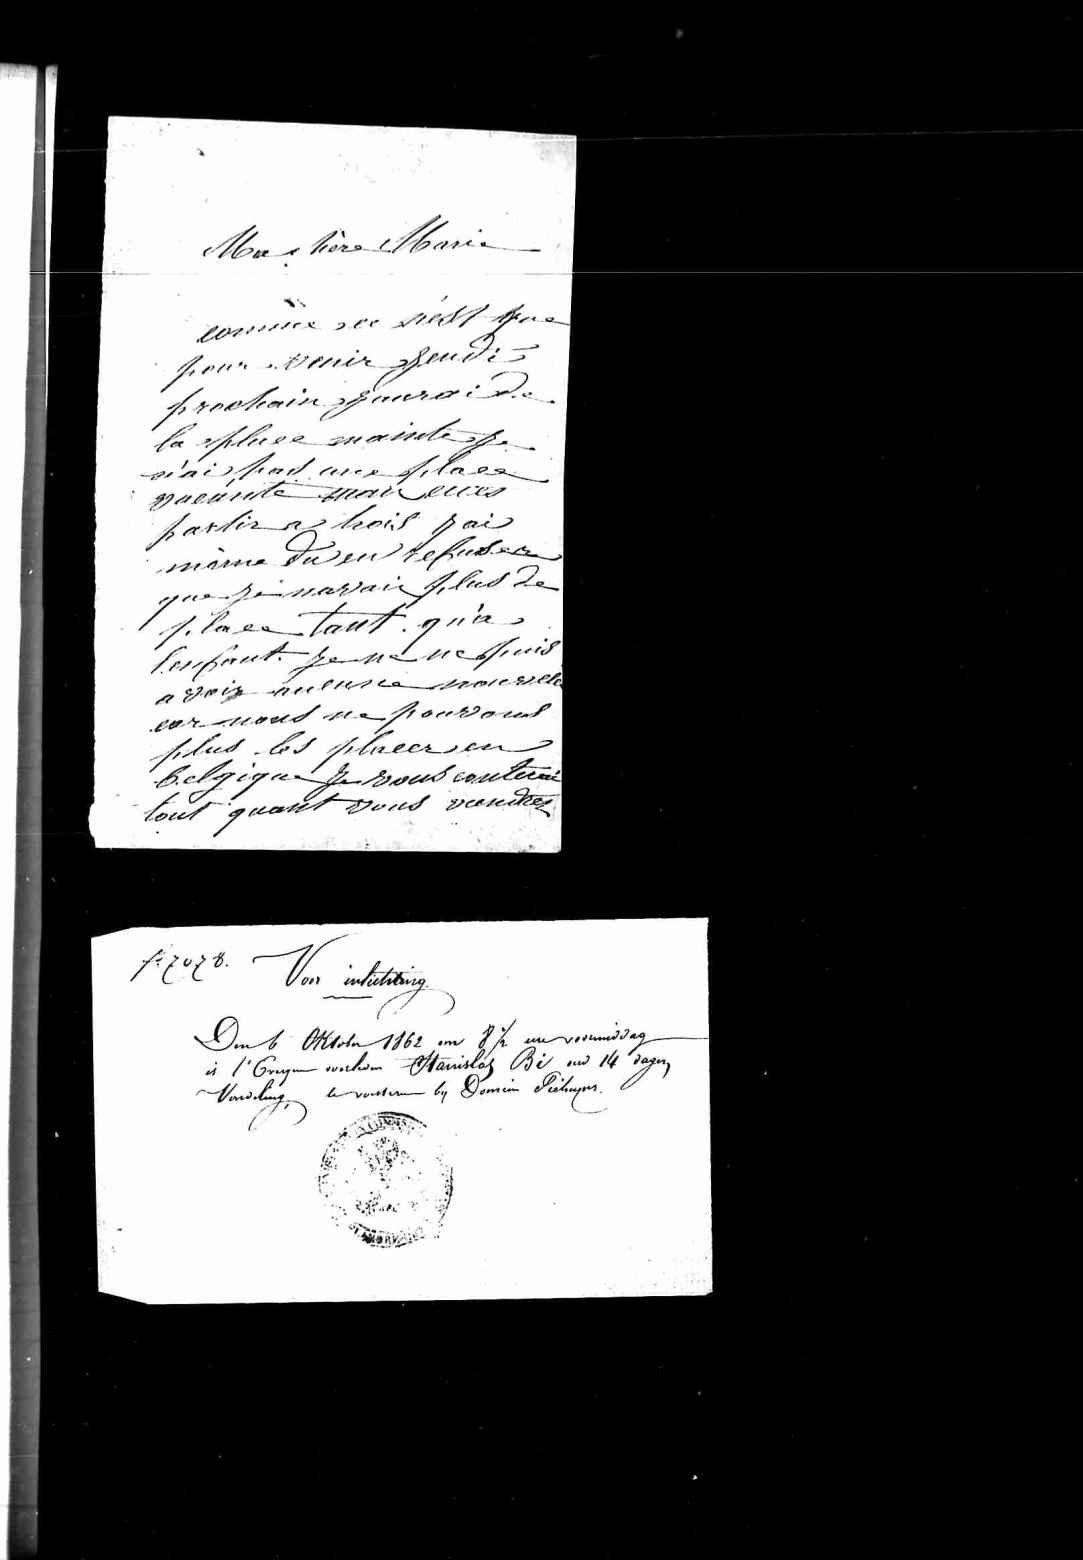 Ma chère Marie
comme ce n'est que
pour venir Jeudi
prochain j'aurai de
la place mainte je
n'ai pas une place
vacante mai
partir a trois j'ai
même du en refuser
que je navais plus de
place tant qu'a
l'enfant. Je ne ne puis
avoir aucune nouvele
car nous ne pouvons
plus les placer en
Belgique Je vous conterai
tout quant vous viendrez
f° 7078. Voor inlichting
Den 6 Oktober 1862 om 8 1/2 ure voormiddag
is overleden Stanislas Bé oud 14 dagen
by Domien